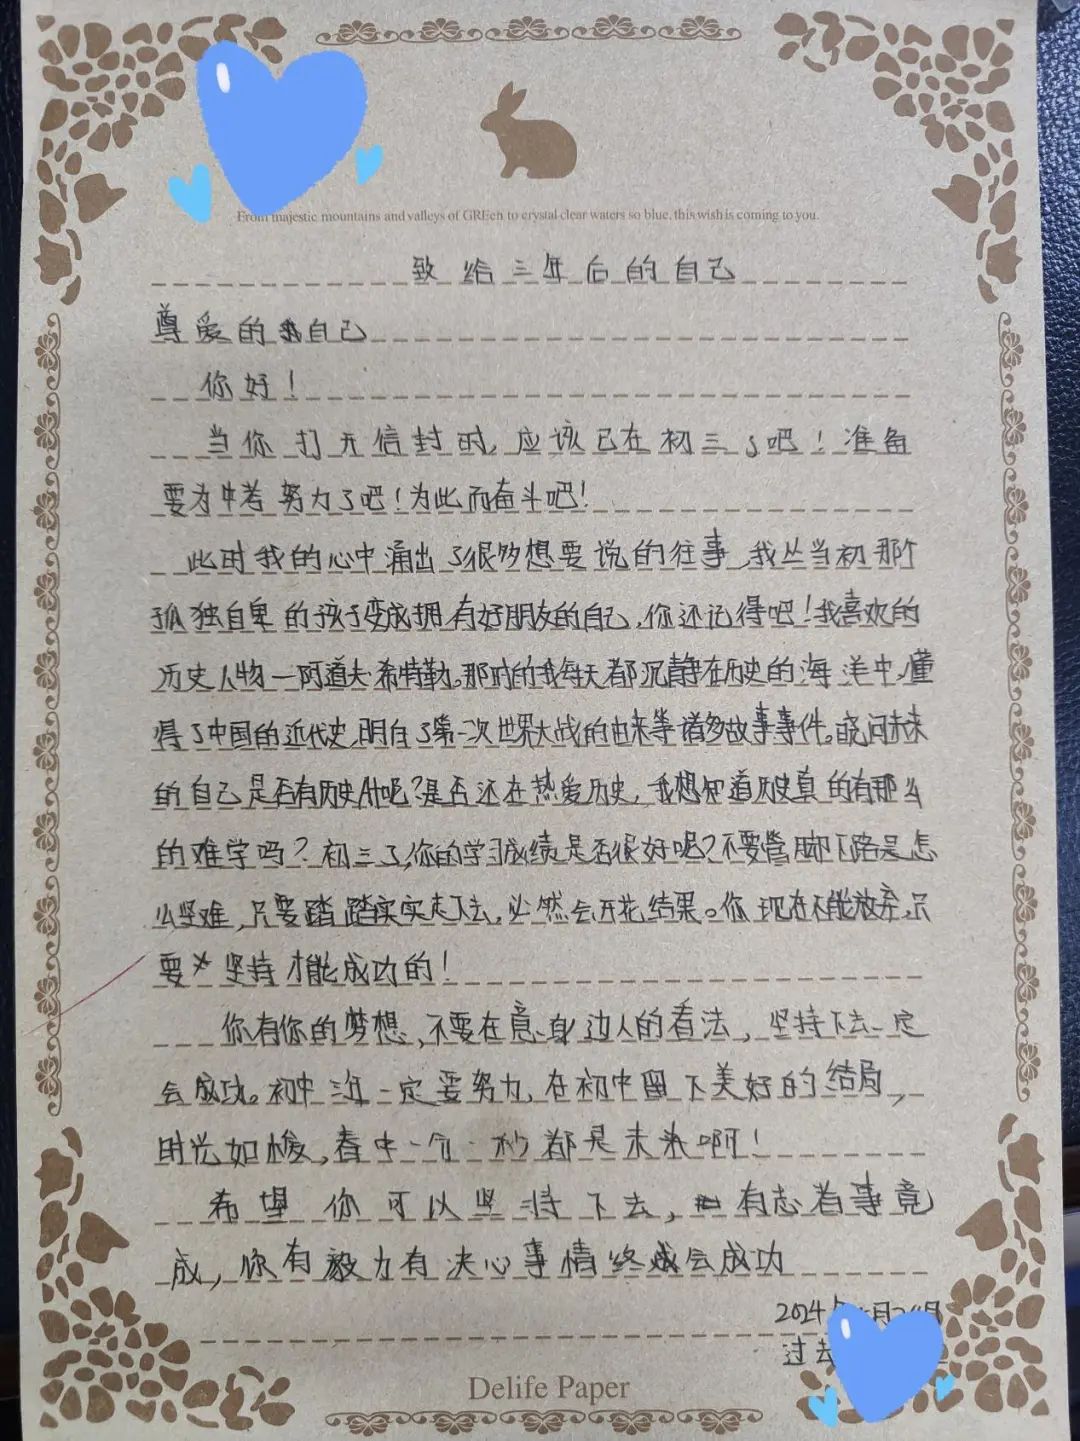 From majestic mountains and valleys of GREen to crystal clear waters so blue, this wish is coming to you.
致给三年后的自己
尊爱的我自己
你好！
当你打开信封时,应该已在初三了吧！准备
要为中考努力了吧！为此而奋斗吧！
此时我的心中涌出了很多想要说的往事,我从当初那个
孤独自卑的孩子变成拥有好朋友的自己,你还记得吧！我喜欢的
历史人物一阿道夫·希特勒。那时的我每天都沉静在历史的海洋中,懂
得了中国的近代史,明白了第一次世界大战的由来等诸多故事事件。或问未来
的自己是否有历史A+呢？是否还在热爱历史,我想知道历史真的有那么
的难学吗？初三了,你的学习成绩是否很好呢？不要管脚下路是怎
么坚难,只要踏踏实实走下去,必然会开花结果。你现在不能放弃,只
要坚持才能成功的！
你有你的梦想,不要在意身边人的看法,坚持下去一定
会成功。初中三年一定要努力,在初中留下美好的结局,
时光如梭,春中一分一秒都是未来啊！
希望你可以坚持下去,有志者事竟
成,你有毅力有决心事情终成会成功
2024年 月
过去
Delife Paper